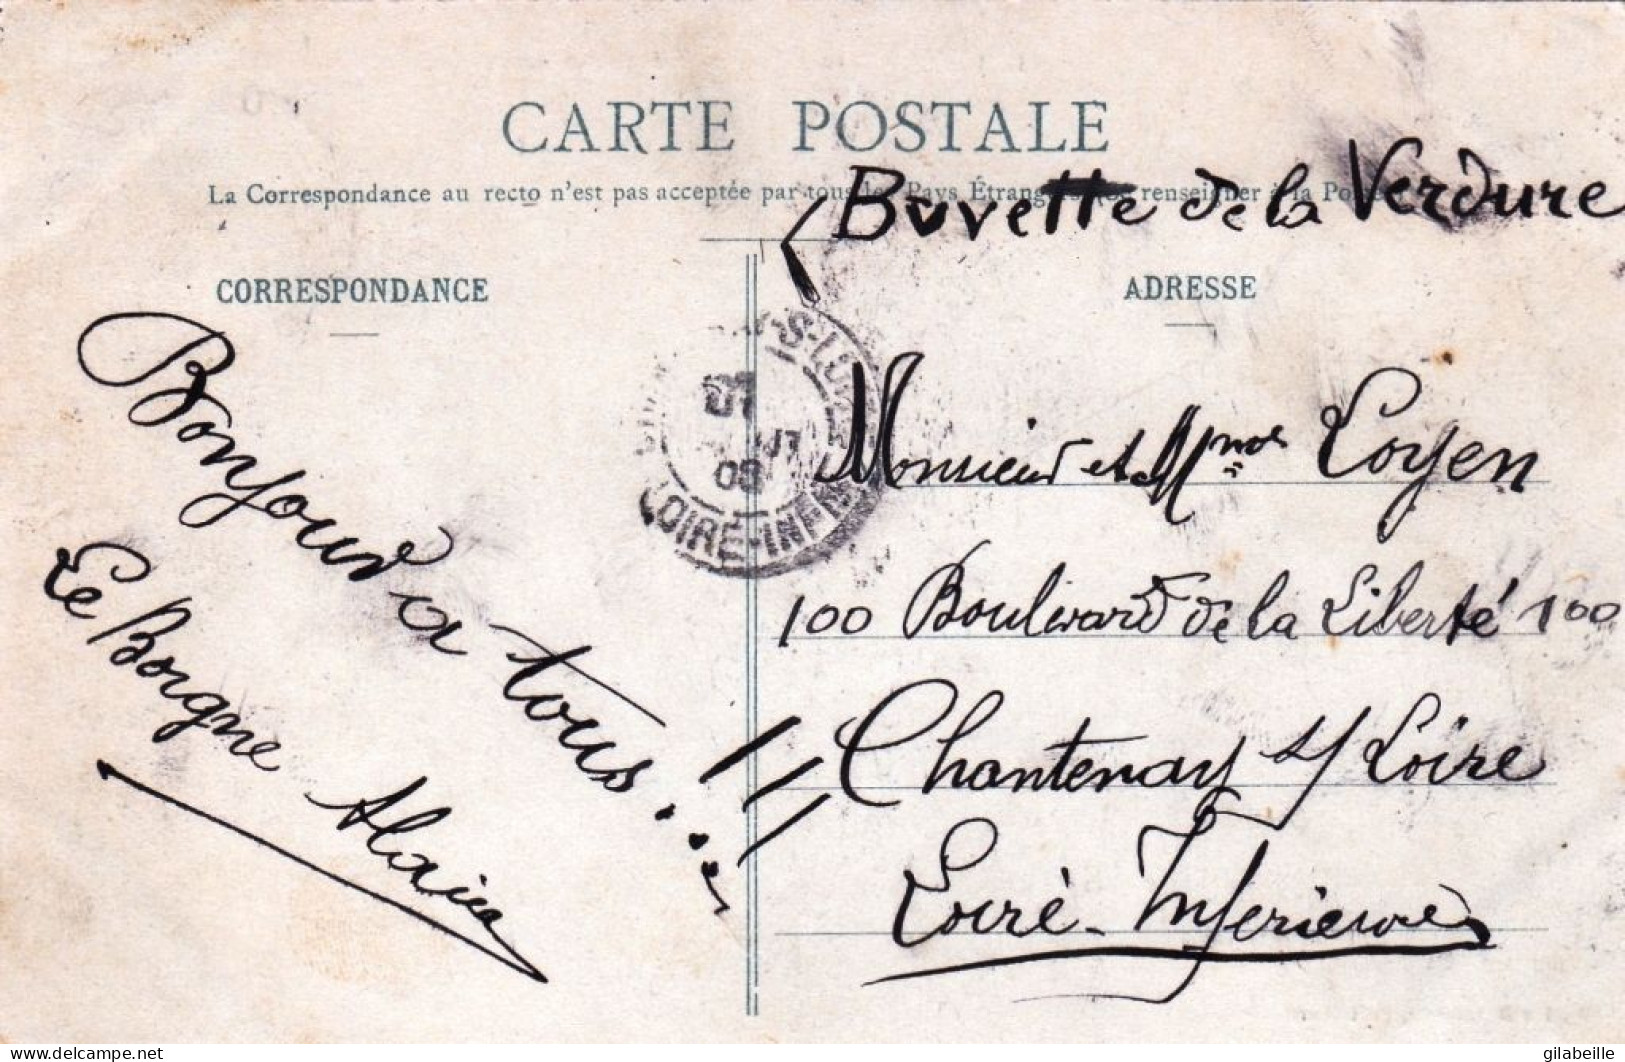 CARTE POSTALE
La Correspondance au recto n'est pas acceptée par tous les Pays Étrangers renseigner à la Poste
Buvette de la Verdure
CORRESPONDANCE
ADRESSE
Bonjour à tous...!!!
Le Borgne Alain
LOIRE-INFRE
Monsieur et Mme Loyen
100 Boulevard de la Liberté 100
Chantenay s/ Loire
Loire-Inférieure
delcampe.net
gilabeille